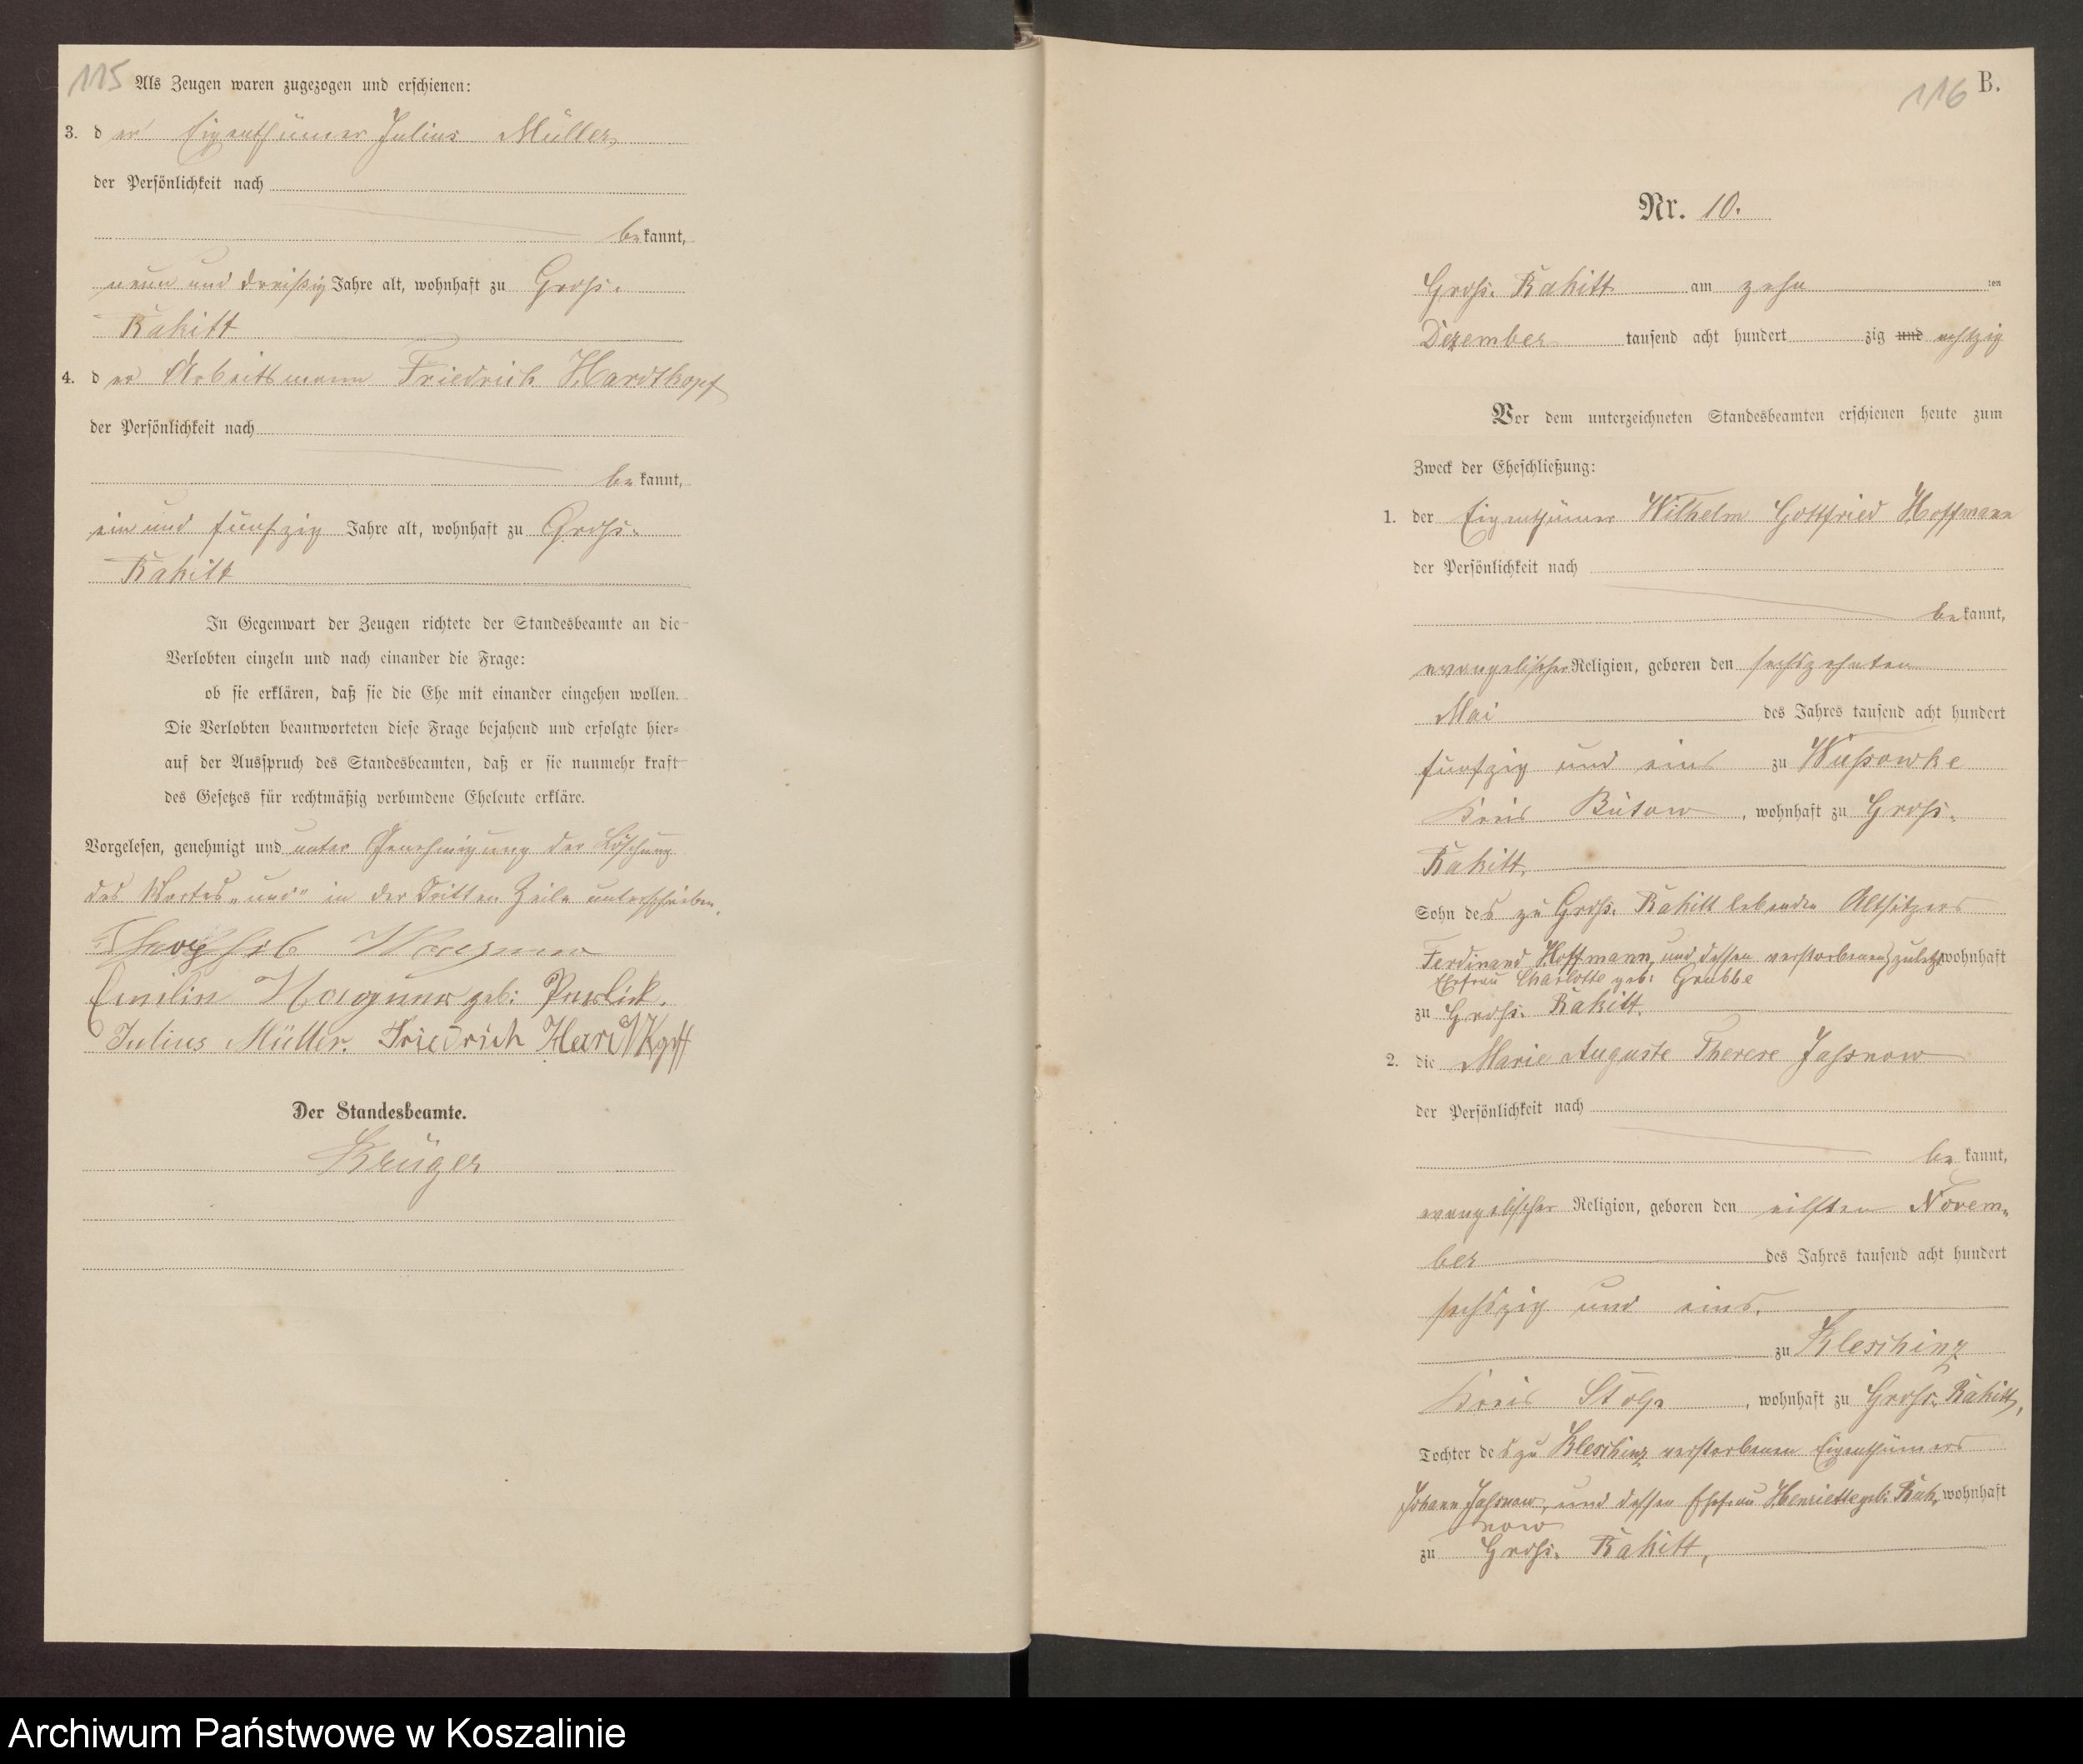 115
Als Zeugen waren zugezogen und erschienen:
3. der Eigenthümer Julius Müller,
der Persönlichkeit nach
bekannt,
neun und dreißig Jahre alt, wohnhaft zu Groß-
Rakitt
4. der Arbeitsmann Friedrich Hardtkopf
der Persönlichkeit nach
bekannt,
ein und fünfzig Jahre alt, wohnhaft zu Groß-
Rakitt
In Gegenwart der Zeugen richtete der Standesbeamte an die
Verlobten einzeln und nach einander die Frage:
ob sie erklären, daß sie die Ehe mit einander eingehen wollen.
Die Verlobten beantworteten diese Frage bejahend und erfolgte hier-
auf der Ausspruch des Standesbeamten, daß er sie nunmehr kraft
des Gesetzes für rechtmäßig verbundene Eheleute erkläre.
Vorgelesen, genehmigt und unter Genehmigung der Löschung
des Wortes „und" in der dritten Zeile unterschrieben.
Wagner
Emilie Wagner geb: Pawlick.
Julius Müller. Friedrich Hardtkopff
Der Standesbeamte.
Krüger
116 B.
Nr. 10.
Groß-Rakitt am zehn ten
Dezember tausend acht hundert zig und achtzig
Vor dem unterzeichneten Standesbeamten erschienen heute zum
Zweck der Eheschließung:
1. der Eigenthümer Wilhelm Gottfried Hoffmann
der Persönlichkeit nach
bekannt,
evangelischer Religion, geboren den sechszehnten
Mai des Jahres tausend acht hundert
fünfzig und eins zu Wussowke
Kreis Bütow, wohnhaft zu Groß-
Rakitt,
Sohn des zu Groß-Rakitt lebenden Altsitzers
Ferdinand Hoffmann, und dessen verstorbenen zuletzt wohnhaft
Ehefrau Charlotte geb: Grubbe
zu Groß-Rakitt.
2. die Marie Auguste Therese Jassnow
der Persönlichkeit nach
bekannt,
evangelischer Religion, geboren den eilften Novem-
ber des Jahres tausend acht hundert
sechszig und eins.
zu Kleschinz
Kreis Stolp, wohnhaft zu Groß-Rakitt,
Tochter des zu Kleschinz verstorbenen Eigenthümers
Johann Jassnow, und dessen Ehefrau Henriette geb: Ruh- wohnhaft
now
zu Groß-Rakitt,
Archiwum Państwowe w Koszalinie